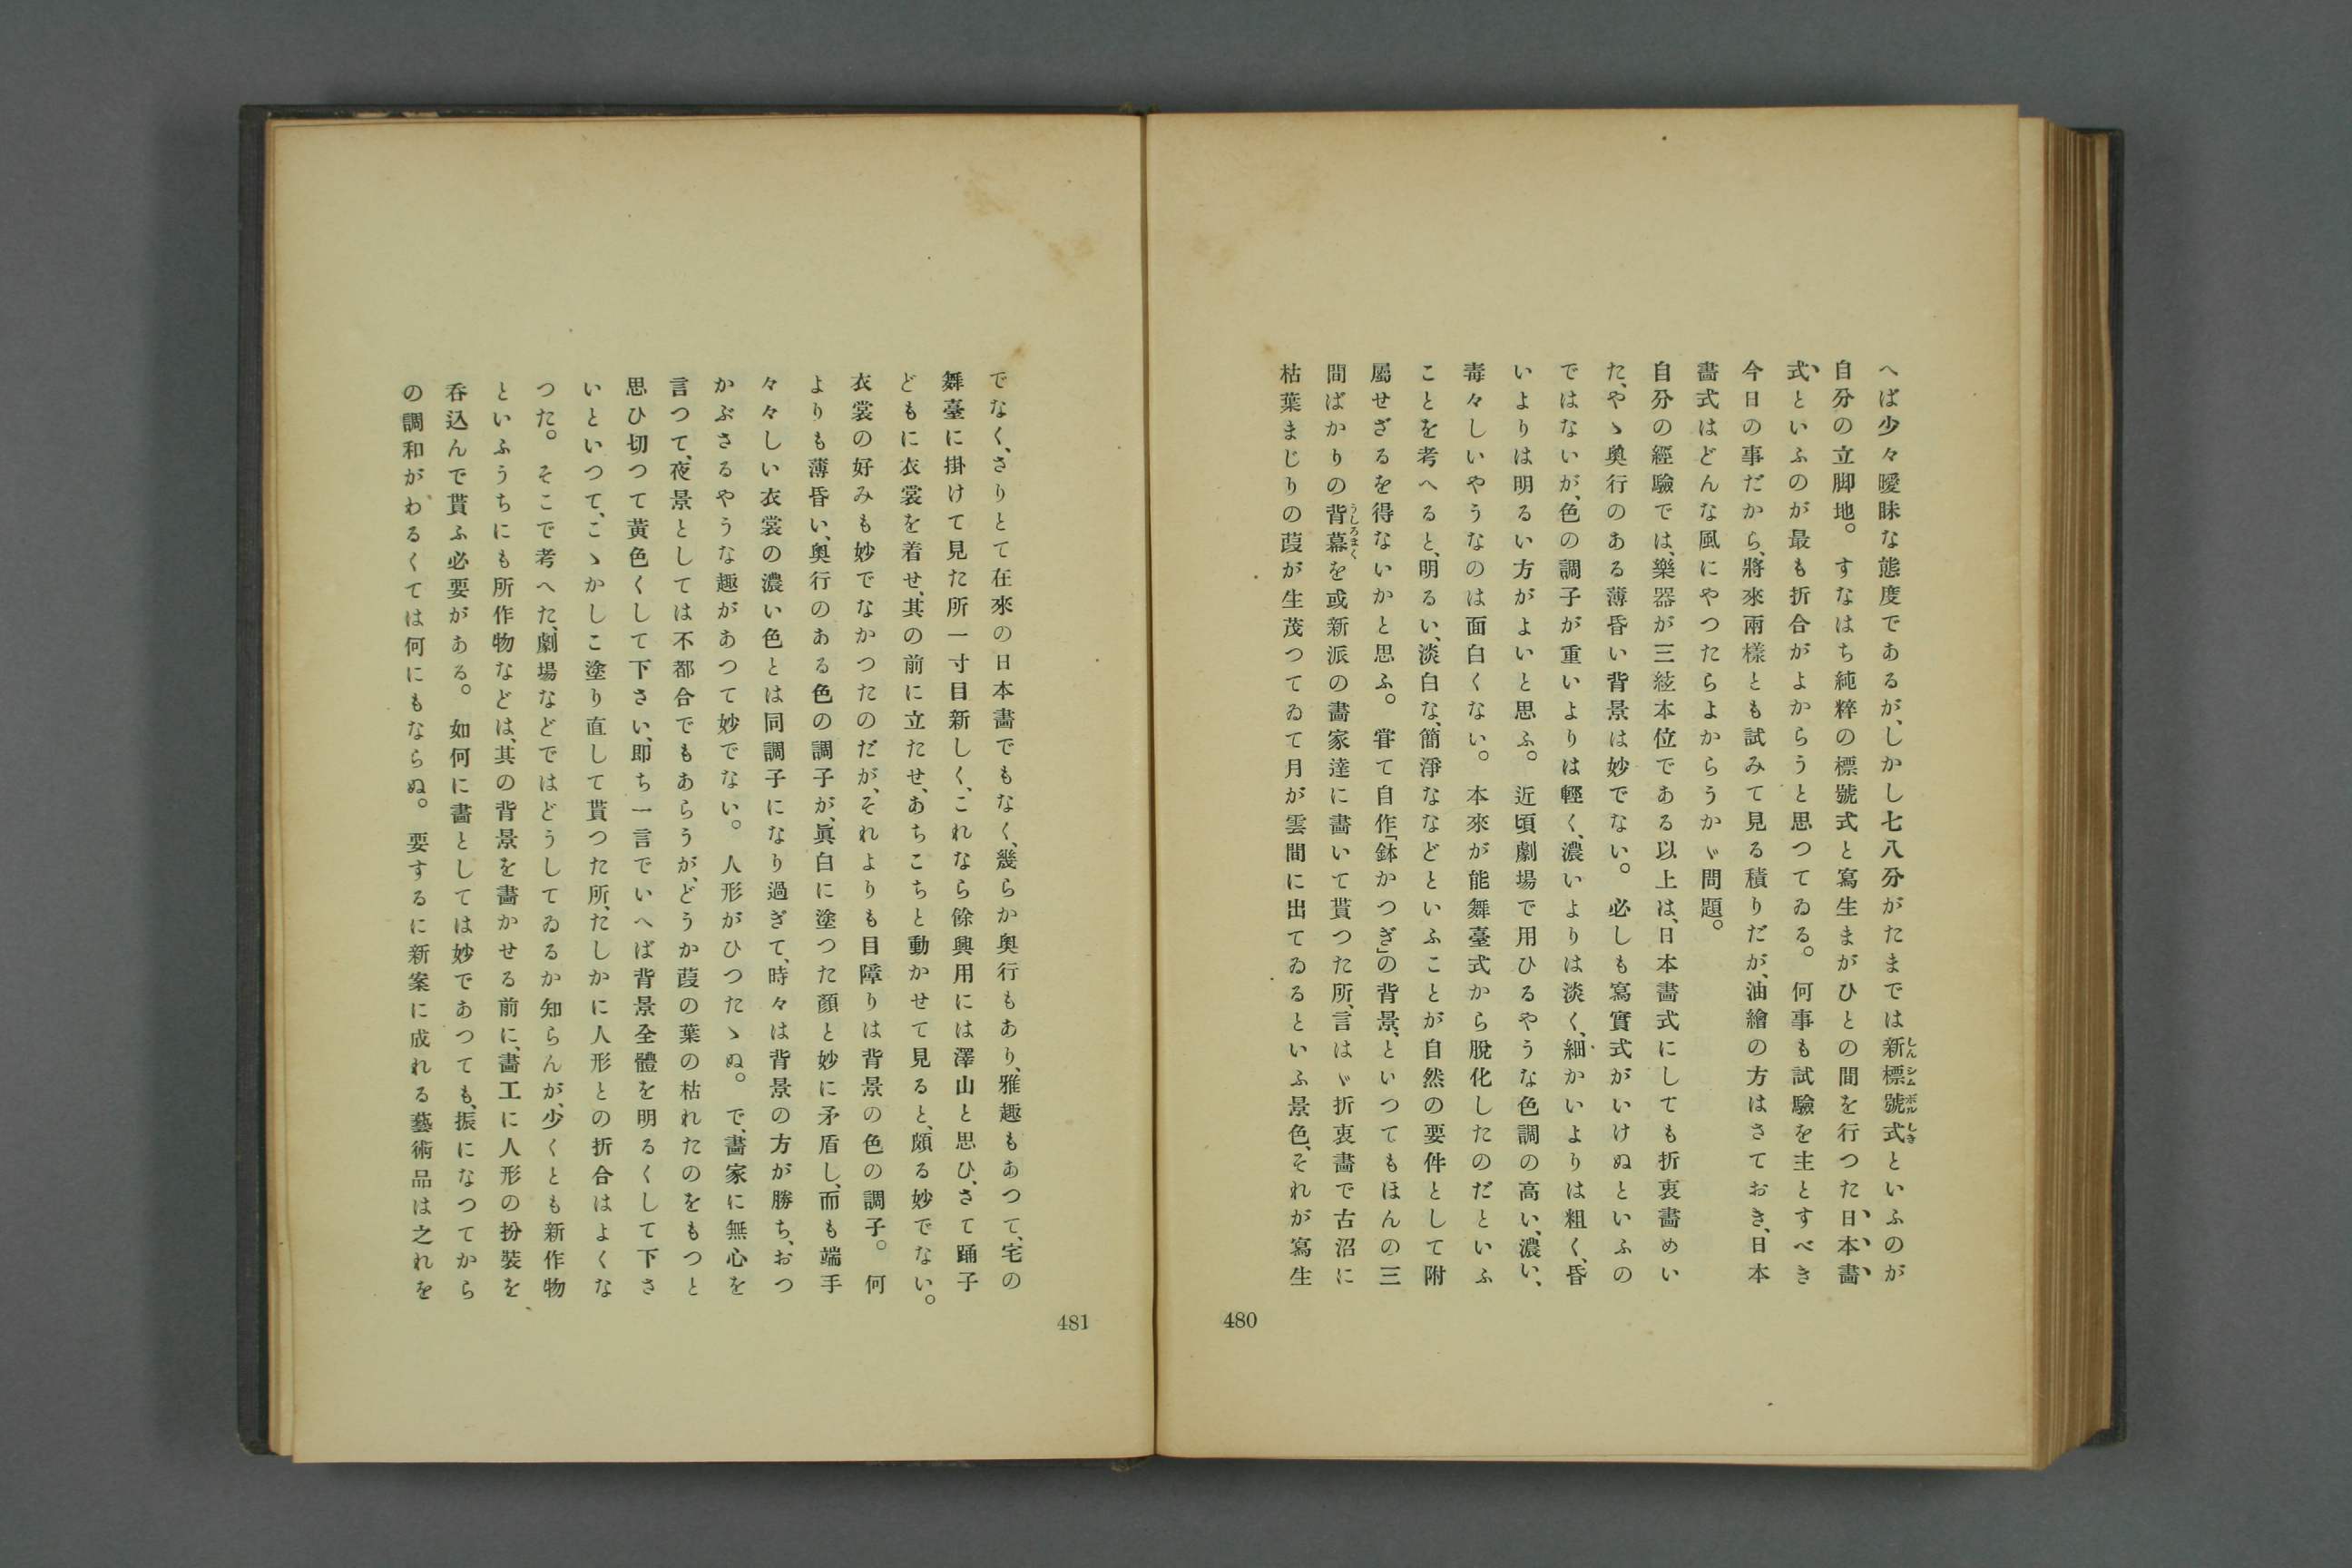 へば少々曖昧な態度であるが、しかし七八分がたまでは新標號式といふのが
自分の立脚地。すなはち純粹の標號式と寫生まがひとの間を行つた日本畵
式といふのが最も折合がよからうと思つてゐる。何事も試驗を主とすべき
今日の事だから、將來兩樣とも試みて見る積りだが、油繪の方はさておき、日本
畵式はどんな風にやつたらよからうかゞ問題。
自分の經驗では、樂器が三絃本位である以上は、日本畵式にしても折衷畵めい
た、やゝ奧行のある薄昏い背景は妙でない。必しも寫實式がいけぬといふの
ではないが、色の調子が重いよりは輕く、濃いよりは淡く、細かいよりは粗く、昏
いよりは明るい方がよいと思ふ。近頃劇場で用ひるやうな色調の高い、濃い、
毒々しいやうなのは面白くない。本來が能舞臺式から脫化したのだといふ
ことを考へると、明るい、淡白な、簡淨ななどといふことが自然の要件として附
屬せざるを得ないかと思ふ。甞て自作「鉢かつぎ」の背景、といつてもほんの三
間ばかりの背幕を或新派の畵家達に畵いて貰つた所、言はゞ折衷畵で古沼に
枯葉まじりの葭が生茂つてゐて月が雲間に出てゐるといふ景色、それが寫生
480
でなく、さりとて在來の日本畵でもなく、幾らか奧行もあり、雅趣もあつて、宅の
舞臺に掛けて見た所一寸目新しく、これなら餘興用には澤山と思ひ、さて踊子
どもに衣裳を着せ、其の前に立たせ、あちこちと動かせて見ると、頗る妙でない。
衣裳の好みも妙でなかつたのだが、それよりも目障りは背景の色の調子。何
よりも薄昏い、奧行のある色の調子が、眞白に塗つた顏と妙に矛盾し、而も端手
々々しい衣裳の濃い色とは同調子になり過ぎて、時々は背景の方が勝ち、おつ
かぶさるやうな趣があつて妙でない。人形がひつたゝぬ。で、畵家に無心を
言つて、夜景としては不都合でもあらうが、どうか葭の葉の枯れたのをもつと
思ひ切つて黃色くして下さい、即ち一言でいへば背景全體を明るくして下さ
いといつて、こゝかしこ塗り直して貰つた所、たしかに人形との折合はよくな
つた。そこで考へた、劇場などではどうしてゐるか知らんが、少くとも新作物
といふうちにも所作物などは、其の背景を畵かせる前に、畵工に人形の扮裝を
呑込んで貰ふ必要がある。如何に畵としては妙であつても、振になつてから
の調和がわるくては何にもならぬ。要するに新案に成れる藝術品は之れを
481